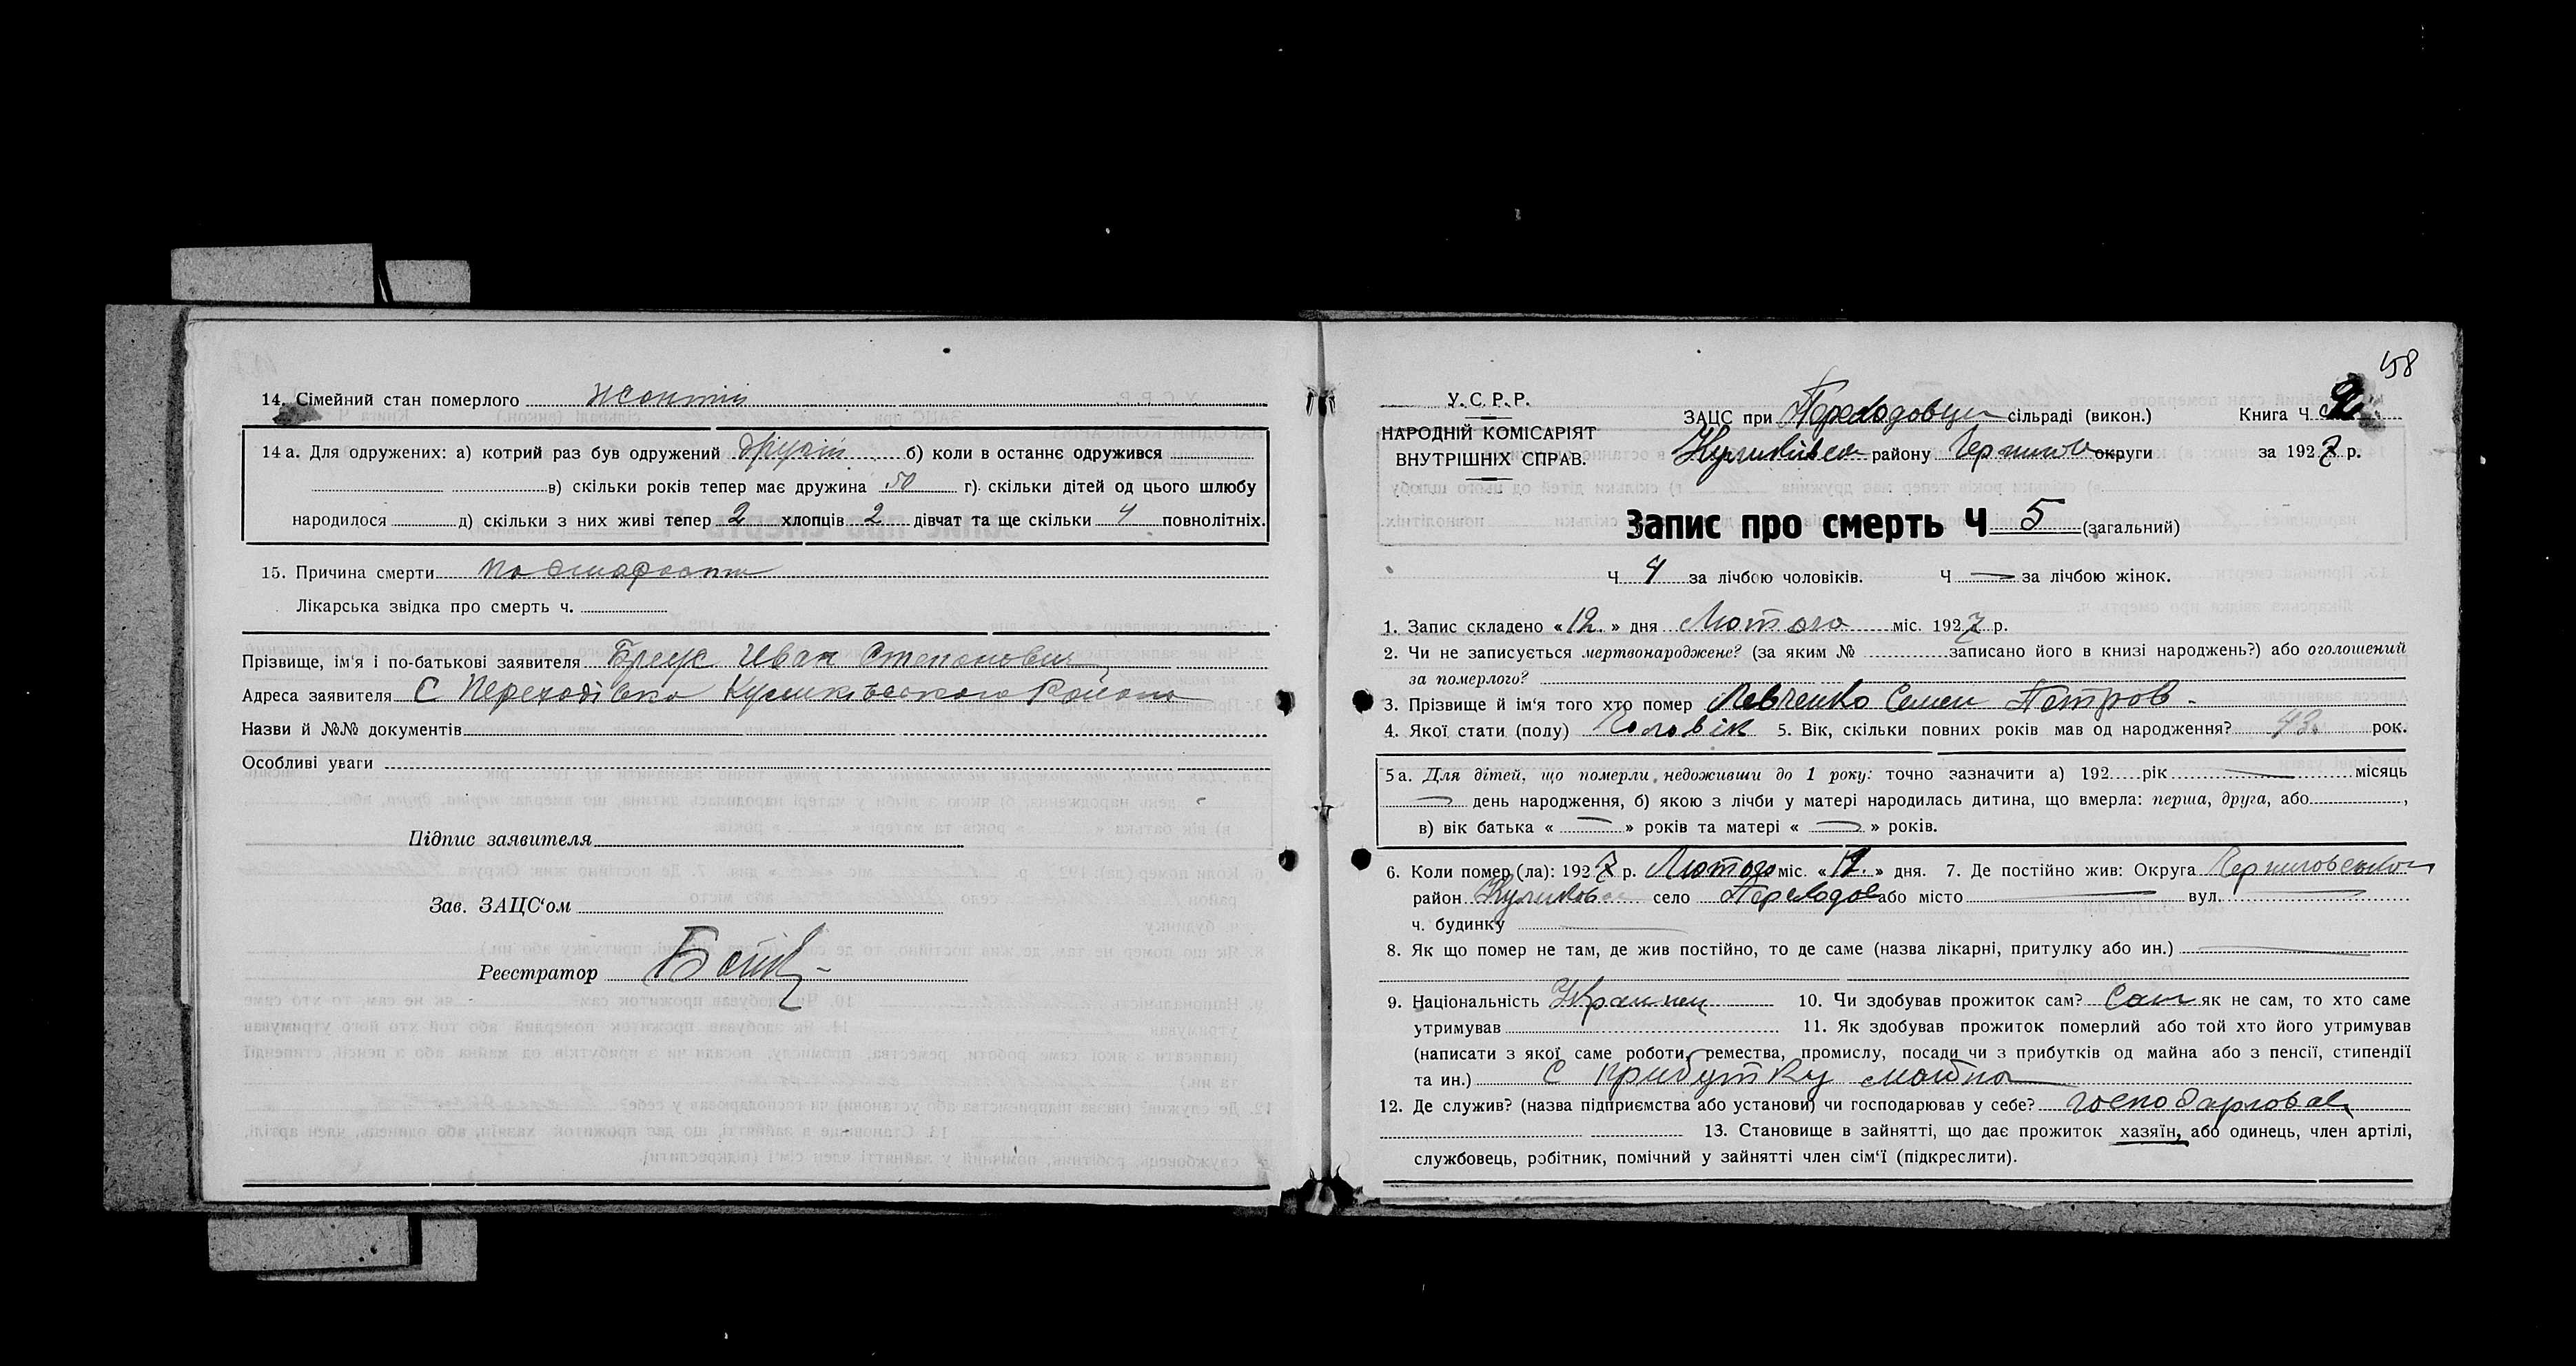 14. Сімейний стан померлого
14 а. Для одружених: а) котрий раз був одружений другий б) коли в останнє одружився
в) скільки років тепер має дружина 50 г) скільки дітей од цього шлюбу
народилося д) скільки з них живі тепер 2 хлопців 2 дівчат та ще скільки 4 повнолітніх.
15. Причина смерти по старости
Лікарська звідка про смерть ч.
Прізвище, ім'я і по-батькові заявителя Иван Степанович
Адреса заявителя С Переходівка Куликівського Району
Назви й №№ документів
Особливі уваги
Підпис заявителя
Зав. ЗАЦС'ом
Реєстратор
158
У. С. Р. Р.
НАРОДНІЙ КОМІСАРІЯТ
ВНУТРІШНІХ СПРАВ.
ЗАЦС при сільраді (викон.) Книга Ч 2
району округи за 1927 р.
Запис про смерть Ч 5 (загальний)
Ч 4 за лічбою чоловіків. Ч — за лічбою жінок.
1. Запис складено «12» дня Лютого міс. 1927 р.
2. Чи не записується мертвонароджене? (за яким № записано його в книзі народжень?) або оголошений
за померлого?
3. Прізвище й ім'я того хто помер Левченко Семен Петров.
4. Якої стати (полу) Чоловік 5. Вік, скільки повних років мав од народження? рок.
5 а. Для дітей, що померли, недоживши до 1 року: точно зазначити а) 192 рік — місяць
— день народження, б) якою з лічби у матері народилась дитина, що вмерла: перша, друга, або ,
в) вік батька « — » років та матері « — » років.
6. Коли помер (ла): 1927 р. Лютого міс. « » дня. 7. Де постійно жив: Округа Черниговська
район село або місто — вул. —
ч. будинку —
8. Як що помер не там, де жив постійно, то де саме (назва лікарні, притулку або ин.) —
9. Національність Украинец 10. Чи здобував прожиток сам? Сам як не сам, то хто саме
утримував 11. Як здобував прожиток померлий або той хто його утримував
(написати з якої саме роботи, ремества, промислу, посади чи з прибутків од майна або з пенсії, стипендії
та ин.) С прибутку майна
12. Де служив? (назва підприємства або установи) чи господарював у себе? господарював
13. Становище в зайнятті, що дає прожиток хазяїн, або одинець, член артілі,
службовець, робітник, помічний у зайнятті член сім'ї (підкреслити).